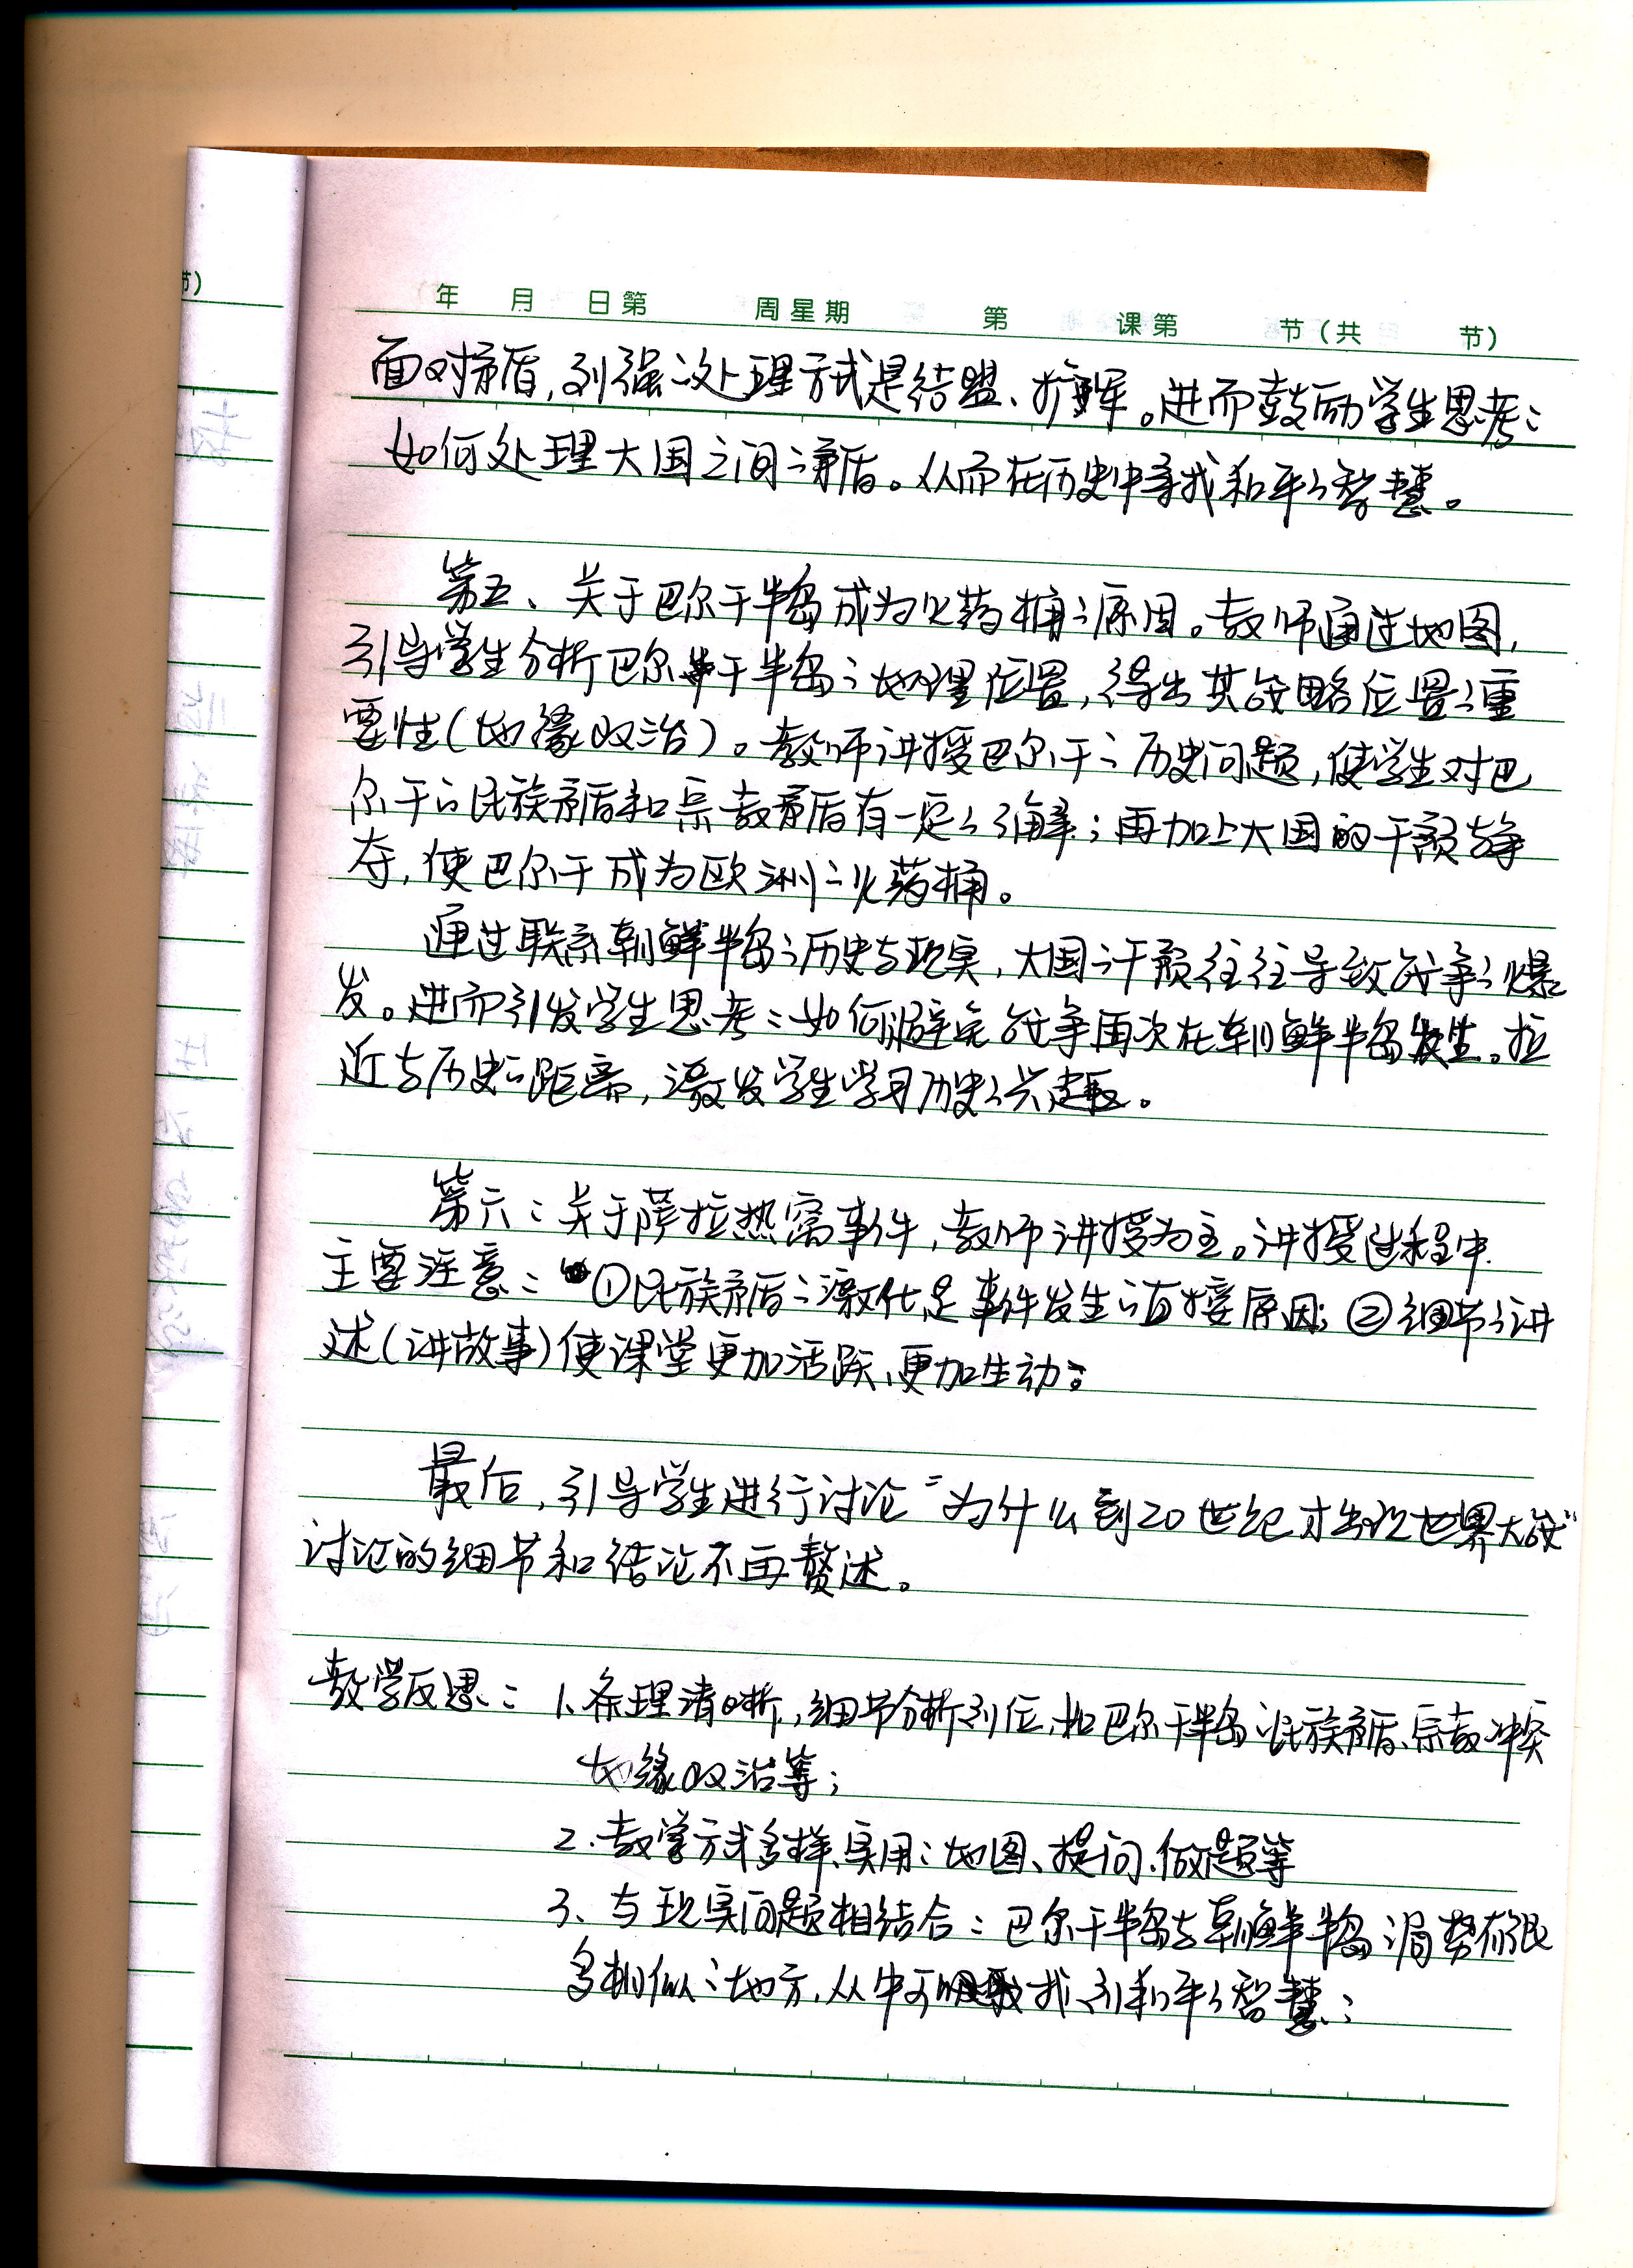 节）
年 月 日第 周星期 第 课第 节（共 节）
面对矛盾，列强之处理方式是结盟、扩军。进而鼓励学生思考：
如何处理大国之间之矛盾。从而在历史中寻找和平之智慧。
第五、关于巴尔干半岛成为火药桶之原因。教师通过地图，
引导学生分析巴尔干半岛之地理位置，得出其战略位置之重
要性（地缘政治）。教师讲授巴尔干之历史问题，使学生对巴
尔干之民族矛盾和宗教矛盾有一定之了解；再加上大国的干预与争
夺，使巴尔干成为欧洲之火药桶。
通过联系朝鲜半岛之历史与现实，大国之干预往往导致战争之爆
发。进而引发学生思考：如何避免战争再次在朝鲜半岛发生。拉
近与历史之距离，激发学生学习历史之兴趣。
第六：关于萨拉热窝事件，教师讲授为主。讲授过程中
主要注意：①民族矛盾之激化是事件发生之直接原因；②细节之讲
述（讲故事）使课堂更加活跃、更加生动。
最后，引导学生进行讨论“为什么到20世纪才出现世界大战”
讨论的细节和结论不再赘述。
教学反思：1、条理清晰，细节分析到位，如巴尔干半岛之民族矛盾、宗教冲突
地缘政治等；
2、教学方式多样、实用：地图、提问、做题等
3、与现实问题相结合：巴尔干半岛与朝鲜半岛之局势有很
多相似之地方，从中可吸取找到和平之智慧；